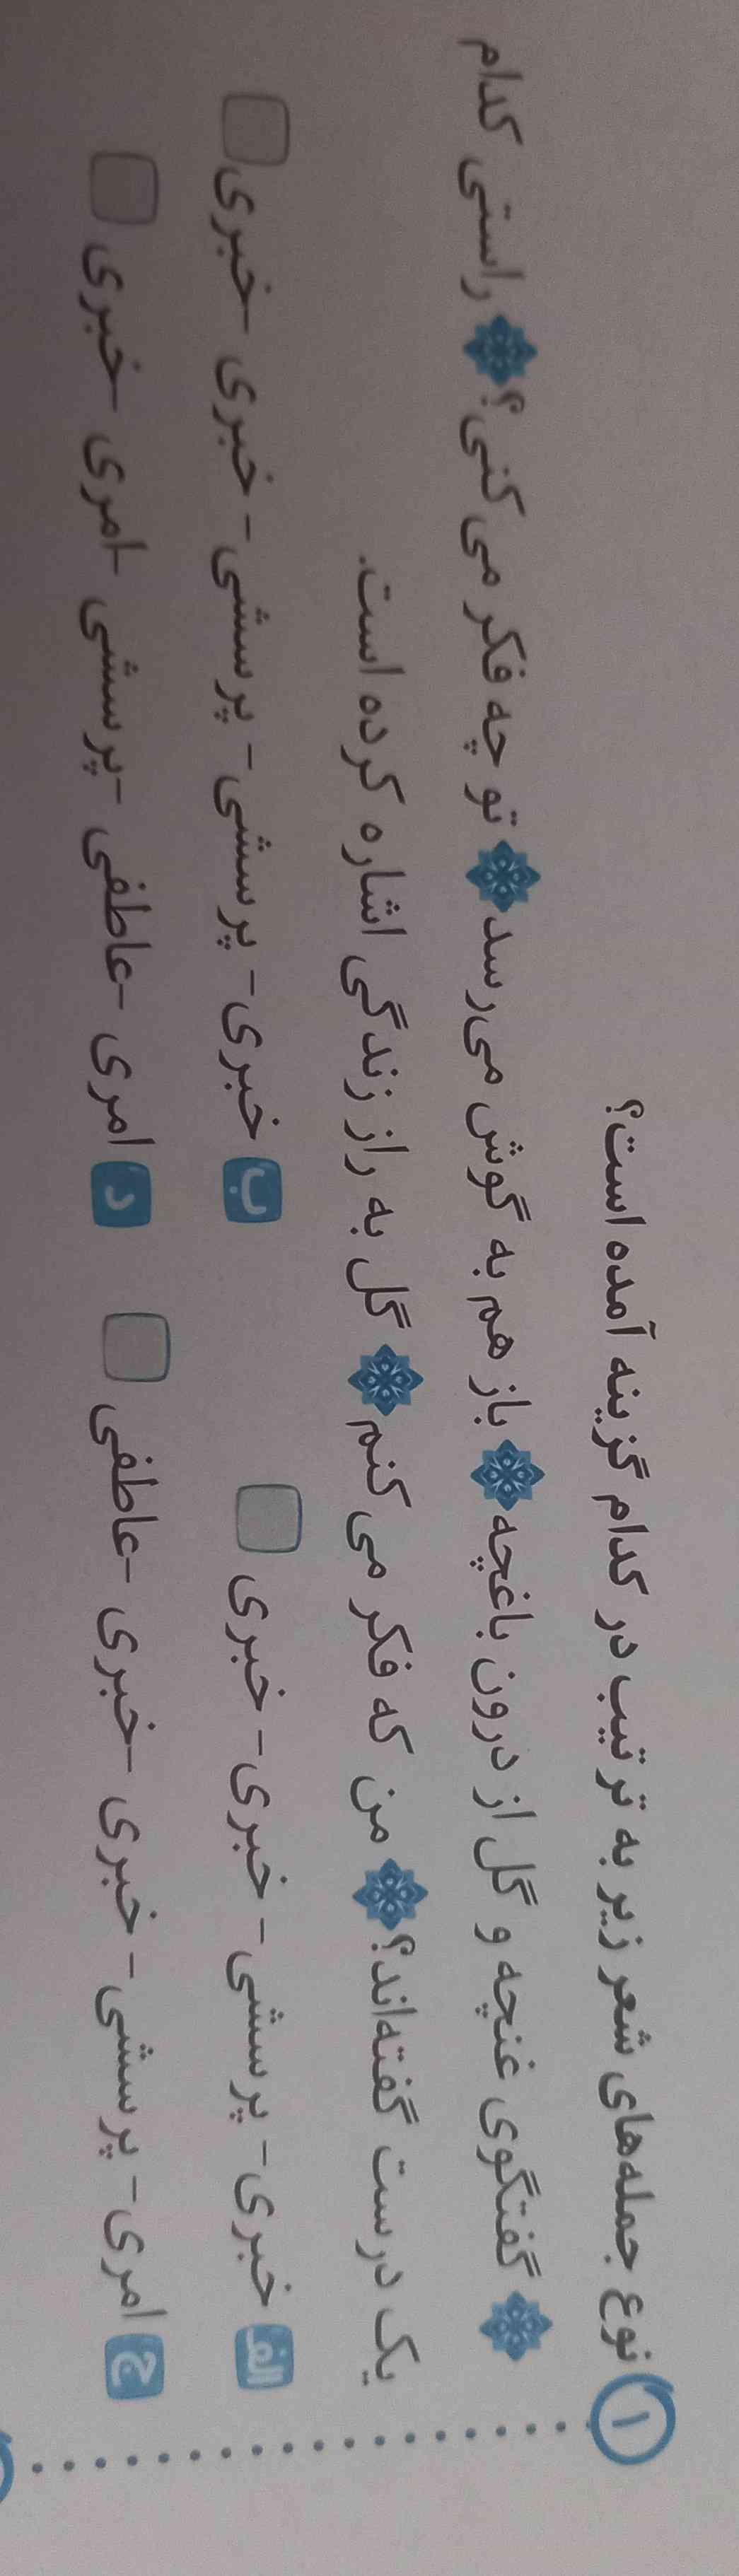 ۱ نوع جمله‌های شعر زیر به ترتیب در کدام گزینه آمده است؟
گفتگوی غنچه و گل از درون باغچه باز هم به گوش می‌رسد تو چه فکر می‌کنی؟ راستی کدام
یک درست گفته‌اند؟ من که فکر می‌کنم گل به راز زندگی اشاره کرده است.
الف خبری - پرسشی - خبری - خبری ب خبری - پرسشی - پرسشی - خبری - خبری
ج امری - پرسشی - خبری - خبری - عاطفی د امری - عاطفی - پرسشی - امری - خبری